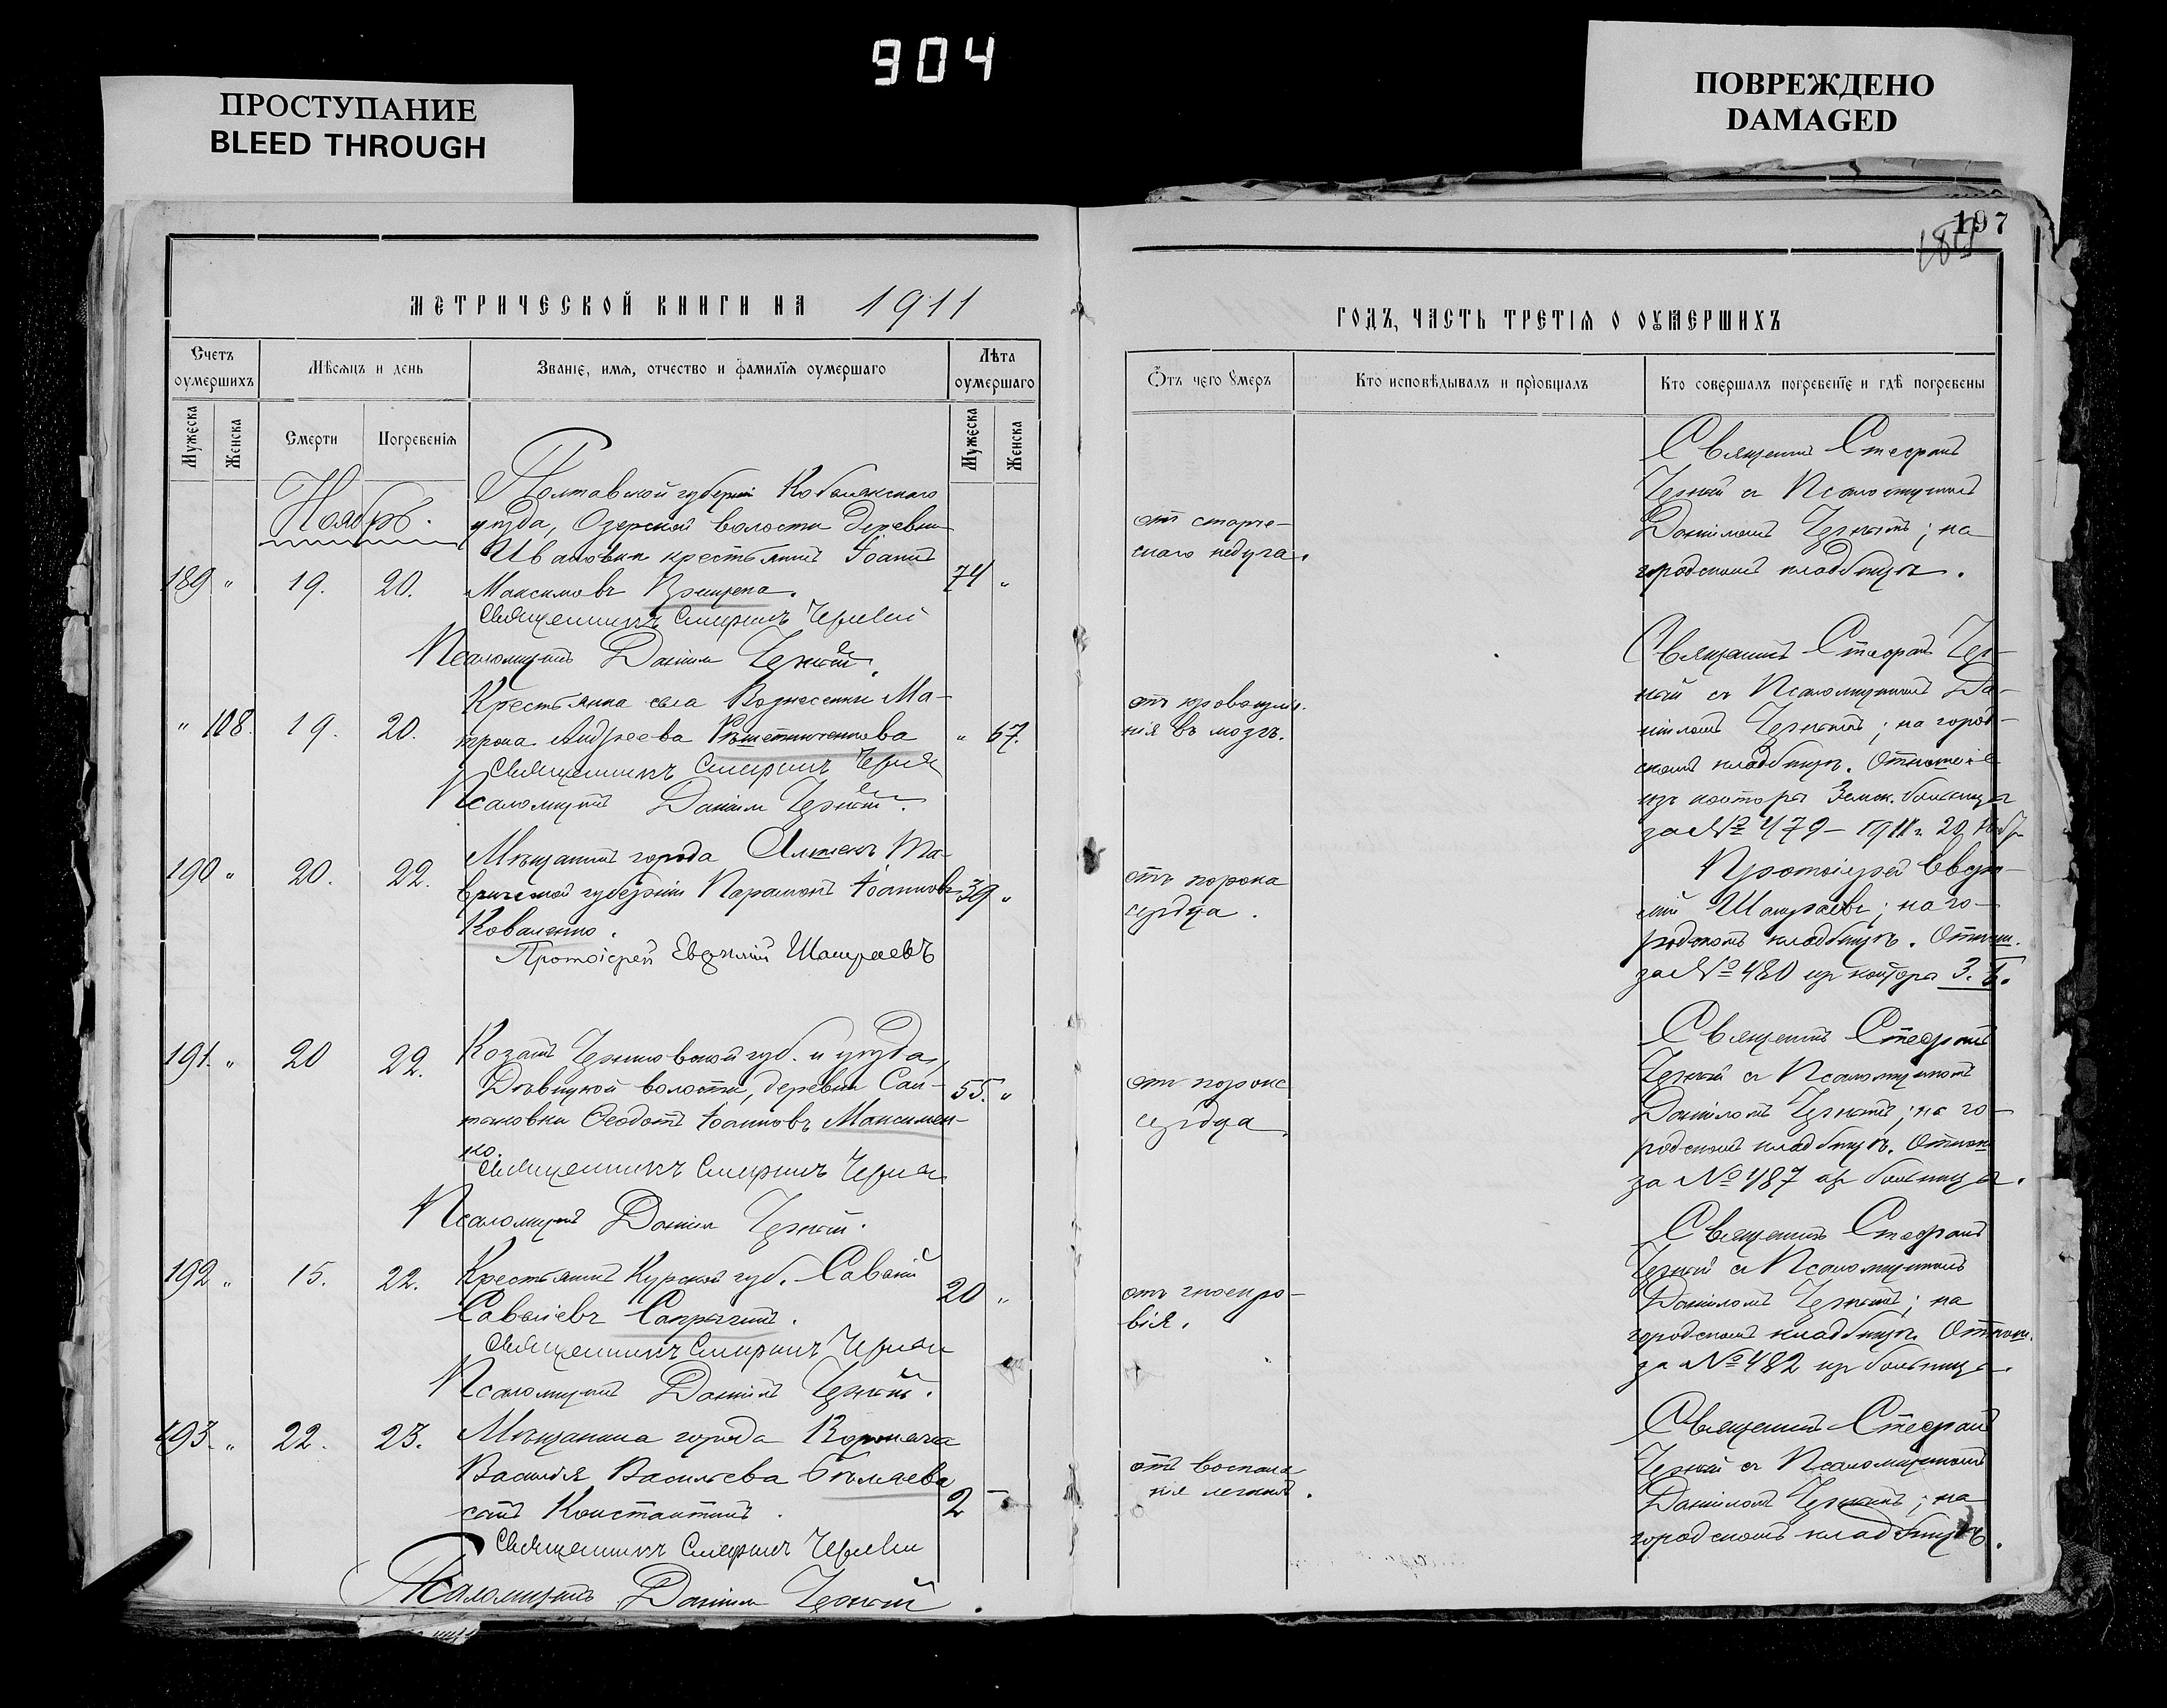 904
ПРОСТУПАНИЕ
BLEED THROUGH
ПОВРЕЖДЕНО
DAMAGED
197
МЕТРИЧЕСКОЙ КНИГИ НА 1911
ГОДЪ, ЧАСТЬ ТРЕТІЯ О ОУМЕРШИХЪ
Счетъ оумершихъ
Мѣсяцъ и день
Званіе, имя, отчество и фамилія оумершаго
Лѣта оумершаго
Мужеска
Женска
Смерти
Погребенія
Мужеска
Женска
Отъ чего умеръ
Кто исповѣдывалъ и пріобщалъ
Кто совершалъ погребеніе и гдѣ погребены
Ноябрь.
Полтавской губерніи Кобелякскаго
уѣзда, Озерской волости деревни
Ивановки крестьянинъ Іоаннъ
189 " 19. 20. Максимовъ 74 "
Священникъ Стефанъ Черный
Псаломщикъ Даніилъ Черный.
отъ старче-
скаго недуга.
Священникъ Стефанъ
Черный съ Псаломщикомъ
Даніиломъ Чернымъ; на
городскомъ кладбищѣ.
Крестьянка села Вознесенки Ма-
" 108. 19. 20. трона Андреева Рѣшетниченкова " 67.
Священникъ Стефанъ Черный
Псаломщикъ Даніилъ Черный.
отъ кровоизлія-
нія въ мозгъ.
Священникъ Стефанъ Чер-
ный съ Псаломщикомъ Да-
ніиломъ Чернымъ; на город-
скомъ кладбищѣ. Отношеніе
изъ конторы Земск. больницы
за № 479 – 1911 г. 20 Нояб.
Мѣщанинъ города Алешекъ Та-
190 " 20. 22. врической губерніи Парамонъ Іоанновъ 39 "
Коваленко.
Протоіерей Евгеній Шашраевъ
отъ порока
сердца.
Протоіерей Евге-
ній ; на го-
родскомъ кладбищѣ. Отнош.
за № 480 изъ конторы З. Б.
Козакъ Черниговской губ. и уѣзда,
191. " 20 22. Дѣвицкой волости, деревни Сал-
тановки Ѳеодотъ Іоанновъ Максимен- 55. "
ко.
Священникъ Стефанъ Черный
Псаломщикъ Даніилъ Черный.
отъ порока
сердца
Священникъ Стефанъ
Черный съ Псаломщикомъ
Даніиломъ Чернымъ; на го-
родскомъ кладбищѣ. Отнош
за № 487 изъ больницы.
192 " 15. 22. Крестьянинъ Курской губ. Савелій 20 "
Савеліевъ Сапрыкинъ.
Священникъ Стефанъ Черный
Псаломщикъ Даніилъ Черный.
отъ гноекро-
вія.
Священникъ Стефанъ
Черный съ Псаломщикомъ
Даніиломъ Чернымъ; на
городскомъ кладбищѣ. Отнош.
за № 482 изъ больницы.
193. " 22. 23. Мѣщанина города
Василія Васильева Бѣляева
сынъ Константинъ. 2 –
Священникъ Стефанъ Черный
Псаломщикъ Даніилъ Черный.
отъ воспале-
нія легкихъ.
Священникъ Стефанъ
Черный съ Псаломщикомъ
Даніиломъ Чернымъ; на
городскомъ кладбищѣ.